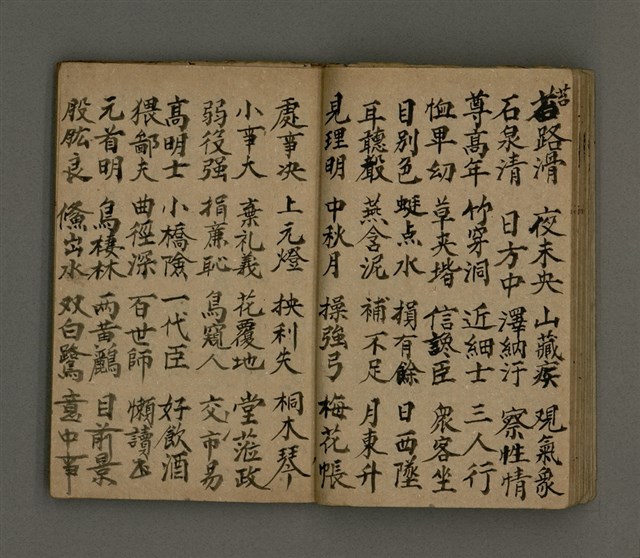 苔路滑 夜未央 山藏疾 觀氣象
苔
石泉清 日方中 澤納汙 察性情
尊高年 竹穿洞 近細士 三人行
恤早幼 草夹堦 信諗臣 衆客坐
目別色 蜓点水 損有餘 日西墜
耳聽聲 燕含泥 補不足 月東升
見理明 中秋月 操強弓 梅花帳
處事决 上元燈 抉利失 桐木琴
小事大 棄礼義 花覆地 堂蒞政
弱役强 捐廉恥 鳥窺人 交市易
高明士 小橋險 一代臣 好飲酒
猥鄙夫 曲徑深 百世師 懶讀
元首明 鳥棲林 两黄鸝 目前景
股肱良 鯈出水 双白鷺 意中事